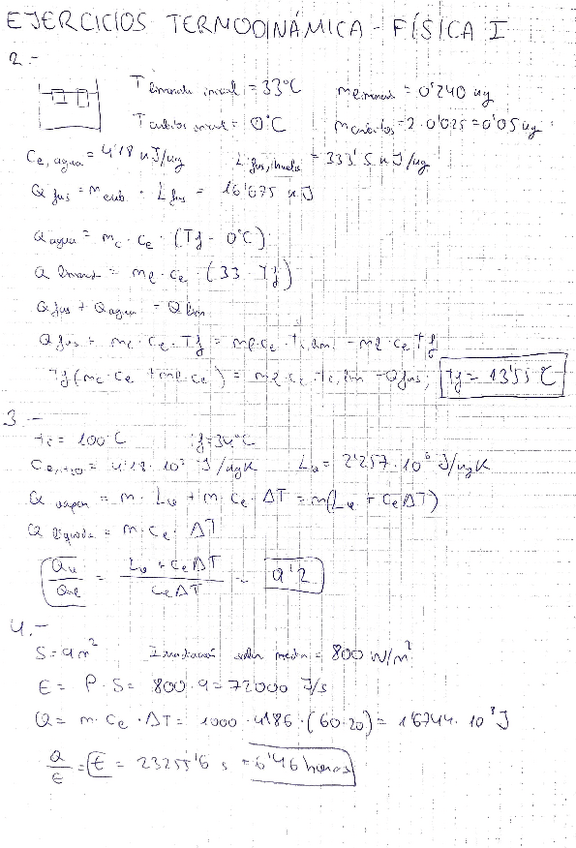 EJERCICIOS TERMODINÁMICA - FÍSICA I
2.-
T limonada inicial = 33°C m limonada = 0'240 kg
T cubitos inicial = 0°C m cubitos = 2·0'025 = 0'05 kg
Ce, agua = 4'18 kJ/kg L fus, hielo = 333'5 kJ/kg
Q fus = m cub · L fus = 16'675 kJ
Q agua = mc · ce · (Tf - 0°C)
Q limonada = ml · ce · (33 - Tf)
Q fus + Q agua = Q lim
Q fus + mc · ce · Tf = ml · ce · ti,lim - ml · ce · tf
Tf (mc · ce + ml · ce) = ml · ce · ti,lim - Qfus; Tf = 13'55°C
3.-
ti = 100°C tf = 34°C
Ce, H2O = 4'18·10³ J/kgK Lv = 2'257·10⁶ J/kgK
Q vapor = m · Lv + m · ce · ΔT = m(Lv + ceΔT)
Q líquido = m · ce · ΔT
Qv/Qe = Lv + ceΔT / ceΔT = 9'2
4.-
S = 9 m² Irradiación solar media = 800 W/m²
E = P · S = 800 · 9 = 72000 J/s
Q = m · ce · ΔT = 1000 · 4186 · (60-20) = 1'6744 · 10⁸ J
Q/E = t = 23255'6 s = 6'46 horas